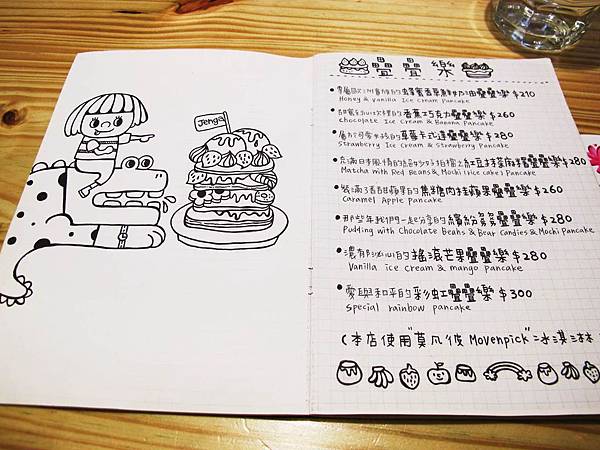 Jenga
疊疊樂
專屬歐洲貴族的蜂蜜香草鮮奶油疊疊樂 $210
Honey & Vanilla Ice Cream Pancake
香蕉巧克力疊疊樂 $260
chocolate Ice Cream & Banana Pancake
草莓卡式達疊疊樂 $280
Strawberry Ice Cream & Strawberry Pancake
紅豆抹茶麻糬疊疊樂 $280
Matcha with Red Beans & Mochi (rice cake) Pancake
裝滿3西洋蘋果的焦糖肉桂蘋果疊疊樂 $260
Caramel Apple Pancake
那些年我們一起分享的繽紛疊疊樂 $280
Pudding with Chocolate Beans & Bear Candies & Mochi Pancake
濃郁冰心的搖滾芒果疊疊樂 $280
Vanilla ice cream & mango pancake
愛與和平的彩虹疊疊樂 $300
special rainbow pancake
(本店使用"莫凡彼 Movenpick"冰淇淋